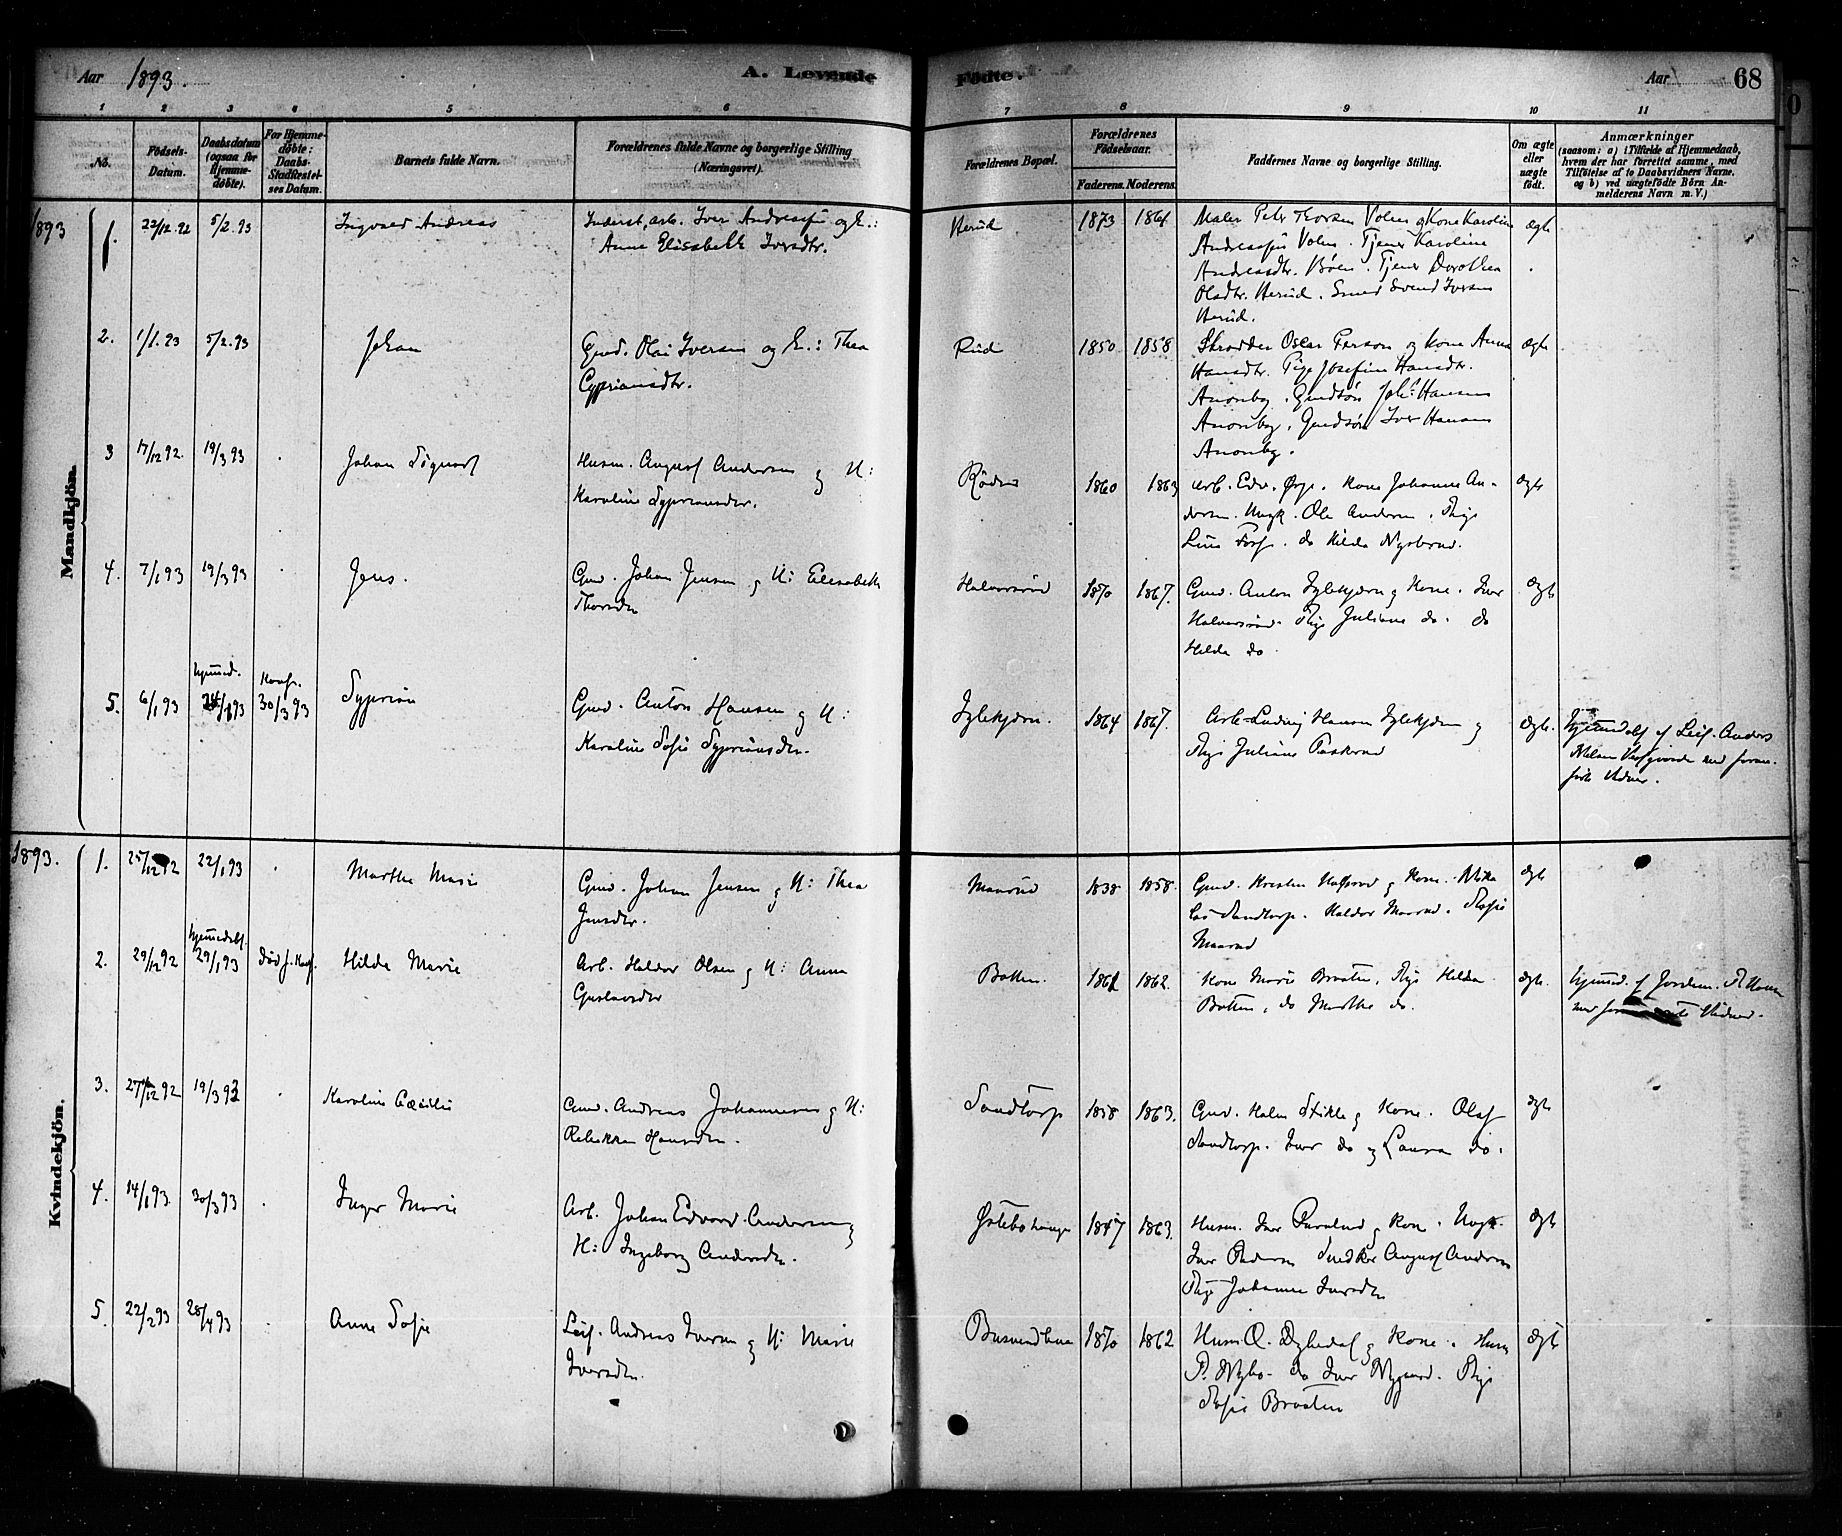 Aar 1893. A. Levende
Födte. Aar 68
1 2 3 4 5 6 7 8 9 10 11
No.
Födsels-
Datum.
Daabsdatum
(ogsaa for
Hjemme-
döbte).
For Hjemme-
döbte:
Daabs-
Stadfæstel-
ses Datum.
Barnets fulde Navn.
Forældrenes fulde Navne og borgerlige Stilling
(Næringsvei).
Forældrenes Bopæl.
Forældrenes
Födselsaar.
Faderens. Moderens.
Faddernes Navne og borgerlige Stilling.
Om ægte
eller
uægte
födt.
Anmærkninger
(saasom: a) i Tilfælde af Hjemmedaab,
hvem der har forrettet samme, med
Tilföielse af to Daabsvidners Navne,
og b) ved uægtefödte Börn An-
melderens Navn m. V.)
Mandkjön.
1893 1. 22/12.92 5/2.93 Ingvald Andreas
Inderst, arb. Iver Andreassen og
Anne Elisabeth Iversdtr.
Herüd 1873 1861
Maler Peter Thorsen Volen og Kone Karoline
Andreassen Volen. Tjener Karoline
Andreasdtr. Böen. Tjener Dorothea
Olsdtr. Herüd. Smed Svend Iversen
Herüd.
ægte
2. 1/1.93 5/2.93 Johan
Gmd. Olai Iversen og H.: Thea
Cypriansdtr.
Rüd 1850 1858
Skrædder Oscar Person og Kone Anna
Hansdtr. Pige Josefine Hansdtr.
Anonby. Gmdsön Joh. Hansen
Anonby. Gmdsön Iver Hansen
Anonby.
ægte
3 17/12 92. 19/3 93 Johan Sigvart
Husm. August Andersen og H:
Karoline Sypriansdtr.
Röds 1860 1863
Arb. Edv. Ørje. Kone Johanne An-
dersen. Ungk. Ole Andersen. Pige
Lina Foss. do Hilda Nysbrud.
ægte
4. 7/1 93 19/3 93 Jens.
Gmd. Johan Jensen og H: Elisabeth
Thorsdtr
Halvorsrüd 1870 1867.
Gmd. Anton Iglekjærn og Kone. Iver
Halvorsrüd. Pige Juliane do. do
Hilda do.
ægte
5. 6/1 93 hjemmed. 24/1 93 Konf. 30/3 93 Syprian
Gmd. Anton Hansen og H:
Karoline Sofie Sypriansdtr.
Iglekjærn. 1864 1867.
Arb. Ludvig Hansen Iglekjærn og
Pige Juliane Paskerud
ægte.
Hjemmedöbt af Leif. Anders
Nilsen med foran-
förte Vidner.
Kvindekjön.
1893. 1. 25/12 92 22/1 93 Marthe Marie
Gmd. Johan Jensen og H: Thea
Jensdtr.
Maarüd 1838 1858.
Gmd. Kristen og Kone.
Sandtorp. Haldor Maarud. Sofie
Maarud
ægte
2. 29/12 92 hjemmedöbt. 29/1 93 död f. Konf. Hilda Marie
Arb. Haldor Olsen og H: Anna
Gustavsdtr
Botten. 1861 1862.
Kone Marie Braaten. Pige Hilda
Botten, do Marthe do.
ægte.
hjemmed. af Jordem.
med Vidner.
3. 27/12 92 19/3 93 Karoline Cæcilie
Gmd. Andreas Johannesen og H:
Rebekka Hansdtr.
Sandtorp 1858 1863.
Gmd. Halvor Stikla og Kone. Olaf
Sandtorp. Iver do og Laura do.
ægte
4. 14/1 93. 30/3 93 Inger Marie
Arb. Johan Edvard Andersen og
H: Ingeborg Andersdtr.
Østebohaugen 1847 1863.
Husm. Iver og Kone. Ungk.
Iver Pedersen Snedker August Andersen
Pige Johanne Iversdtr
ægte
5. 22/2 93 28/4 93 Anne Sofie
Leif. Andreas Iversen og H: Marie
Iversdtr.
1870 1862
Husm O. og Kone. Husm
P. Nybo. do Iver Nygaard. Pige
Sofie Braaten
ægte